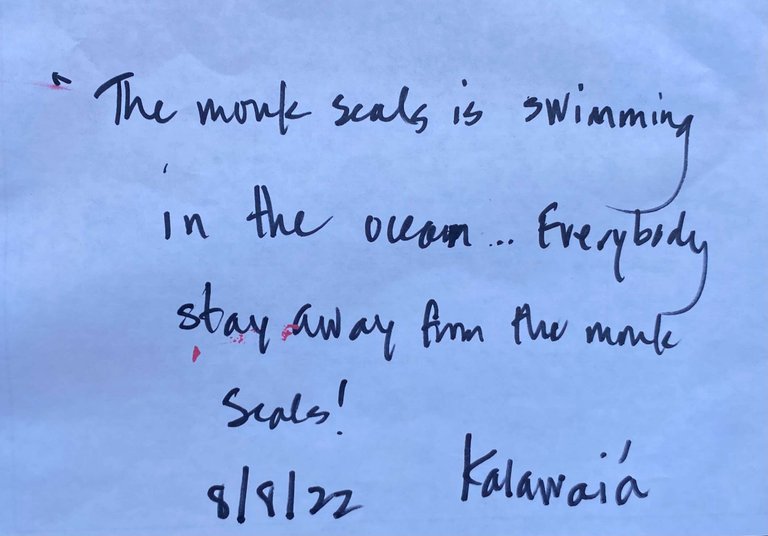 "The monk seals is swimming
in the ocean... Everybody
stay away from the monk
seals!
8/8/22 Kalawai'a